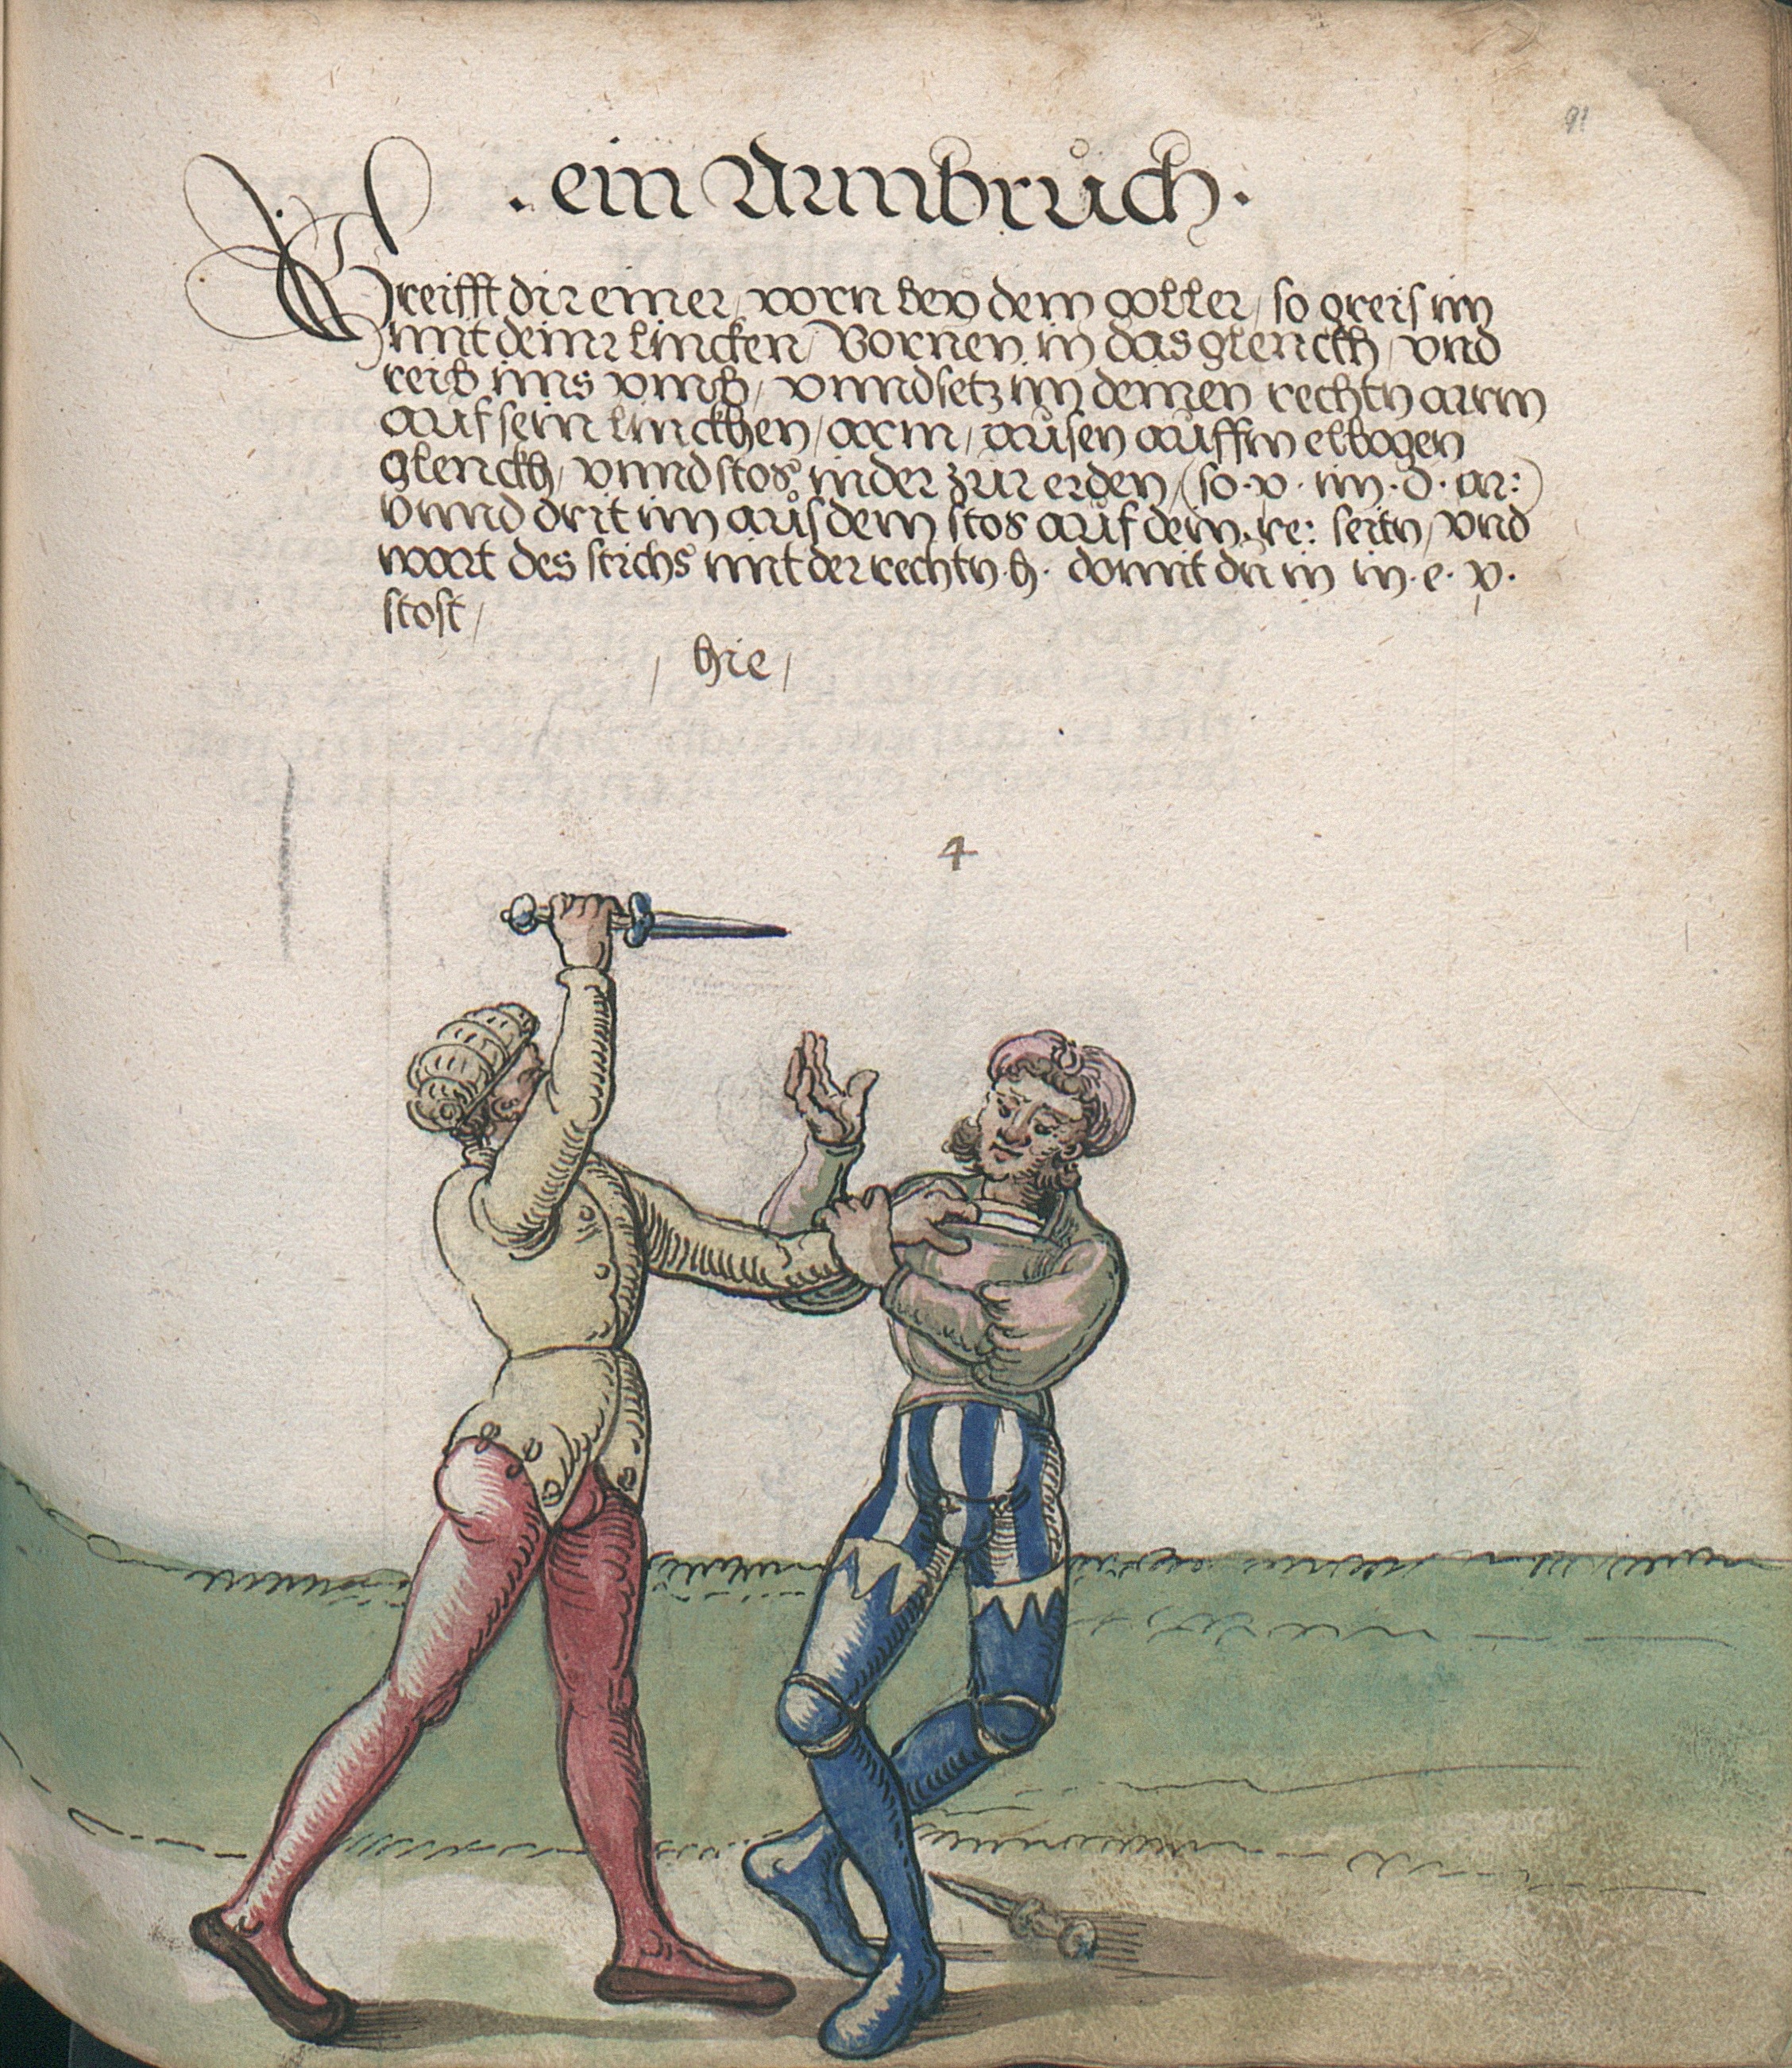 91
. ein Armbruch .
Greifft dir einer / vorn bey dem goller / so greif im
mit deinr lincken / Vornen in das glenckh / vnd
reib ims vmb / vnnd setz im deinen rechtn arm
auf sein linckhen / arm / aůsen aůffm elbogen
glenckh / vnnd stos in der zůr erden / (so . v . im . d . ar :)
vnnd drit im aůs dem stos aůf dein . re : seitn / vnd
wart des stichs mit der rechtn . h . domit dů in in . e . v .
stost /
/ hie /
4